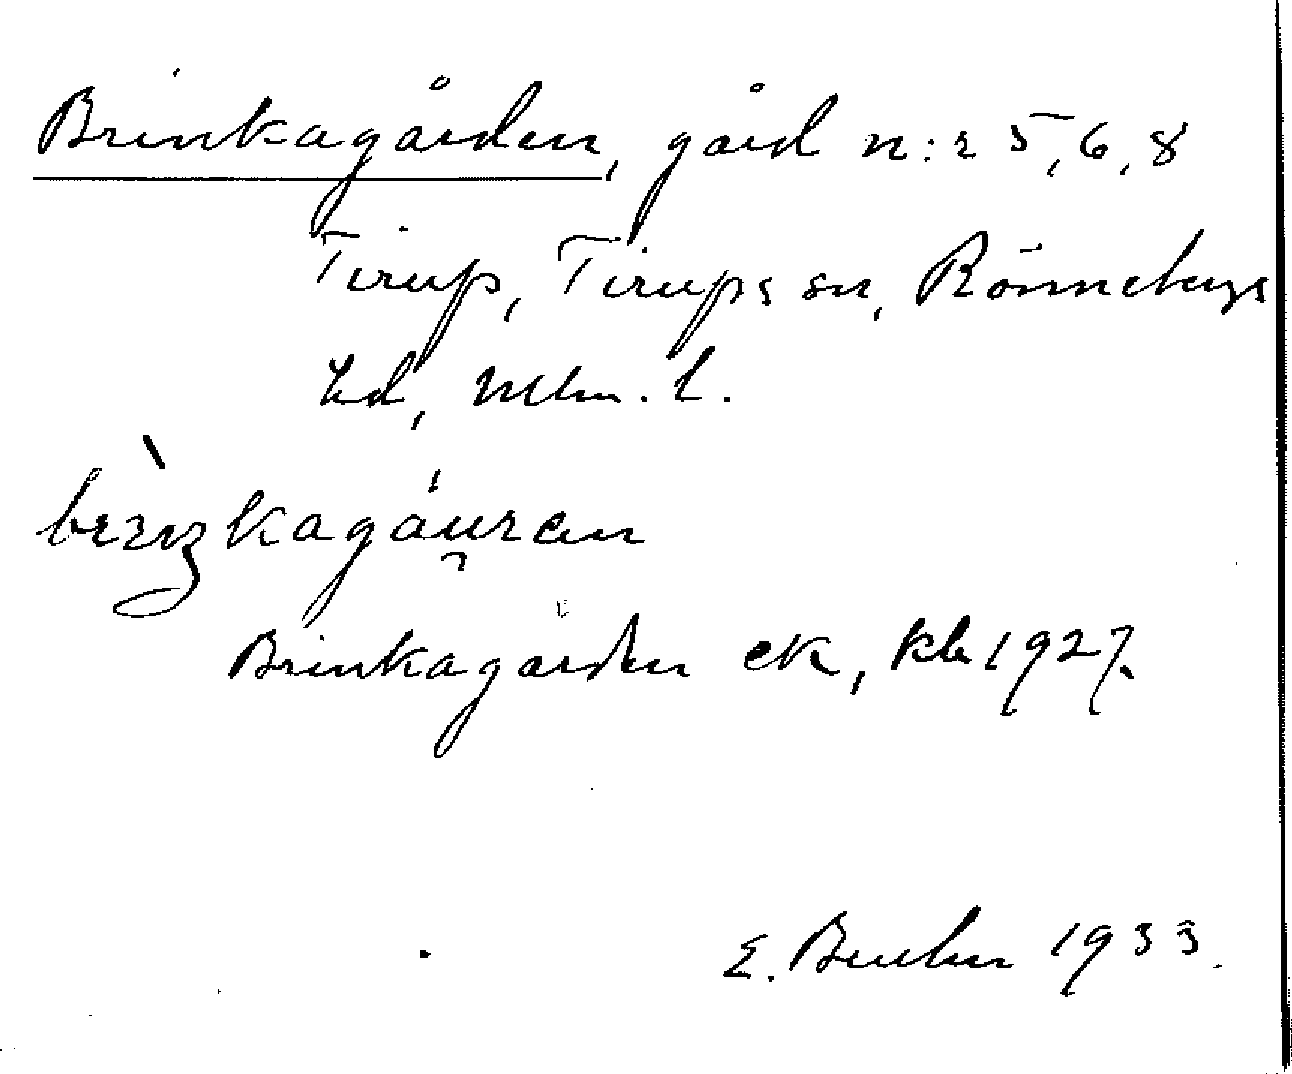 Brinkagården, gård n:r 5, 6, 8
Tirup, Tirups sn, Rönnebergs
hd, Mlm. l.
Brinkagården ek, kb 1927.
E. 1933.